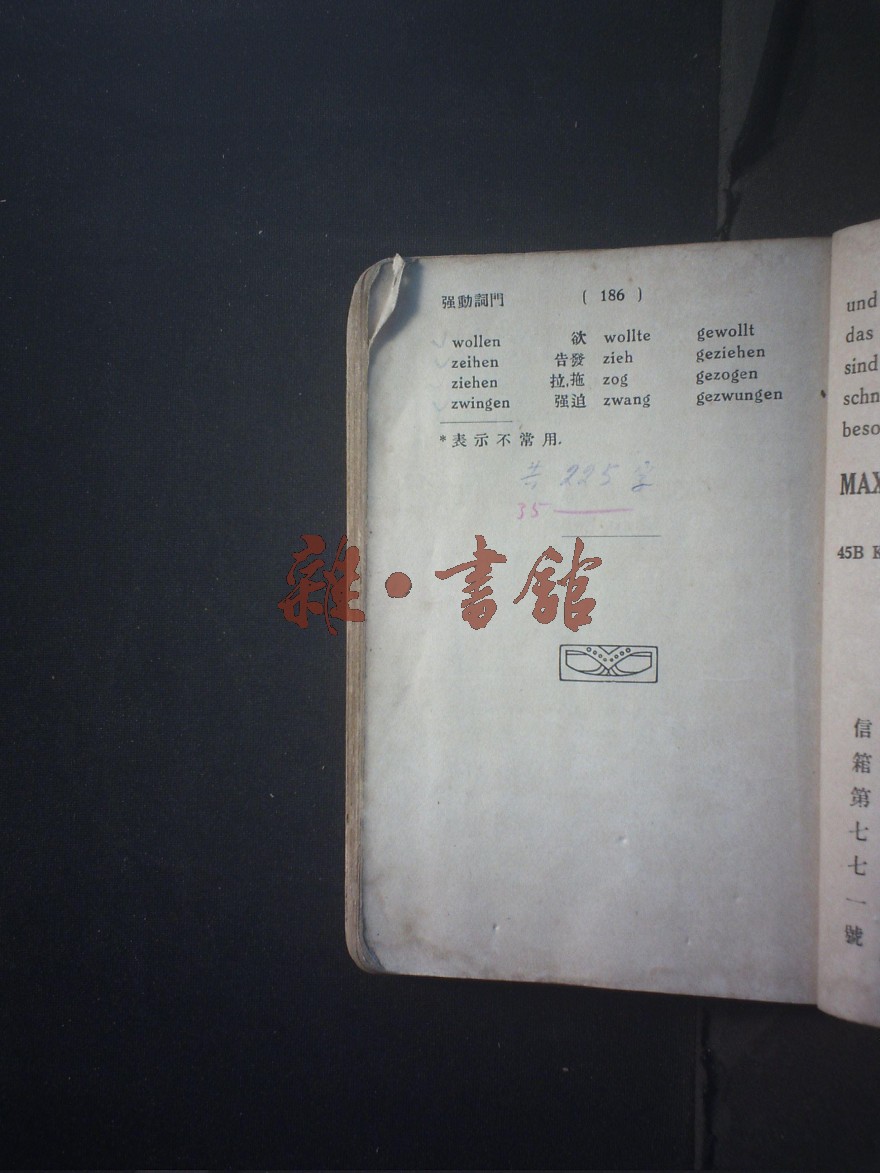 强動詞門 ( 186 )
wollen 欲 wollte gewollt
zeihen 告發 zieh geziehen
ziehen 拉,拖 zog gezogen
zwingen 强迫 zwang gezwungen
*表示不常用.
共 225 字
35
雜·書館
und
das
sind
schn
beso
MAX
45B K
信箱第七七一號